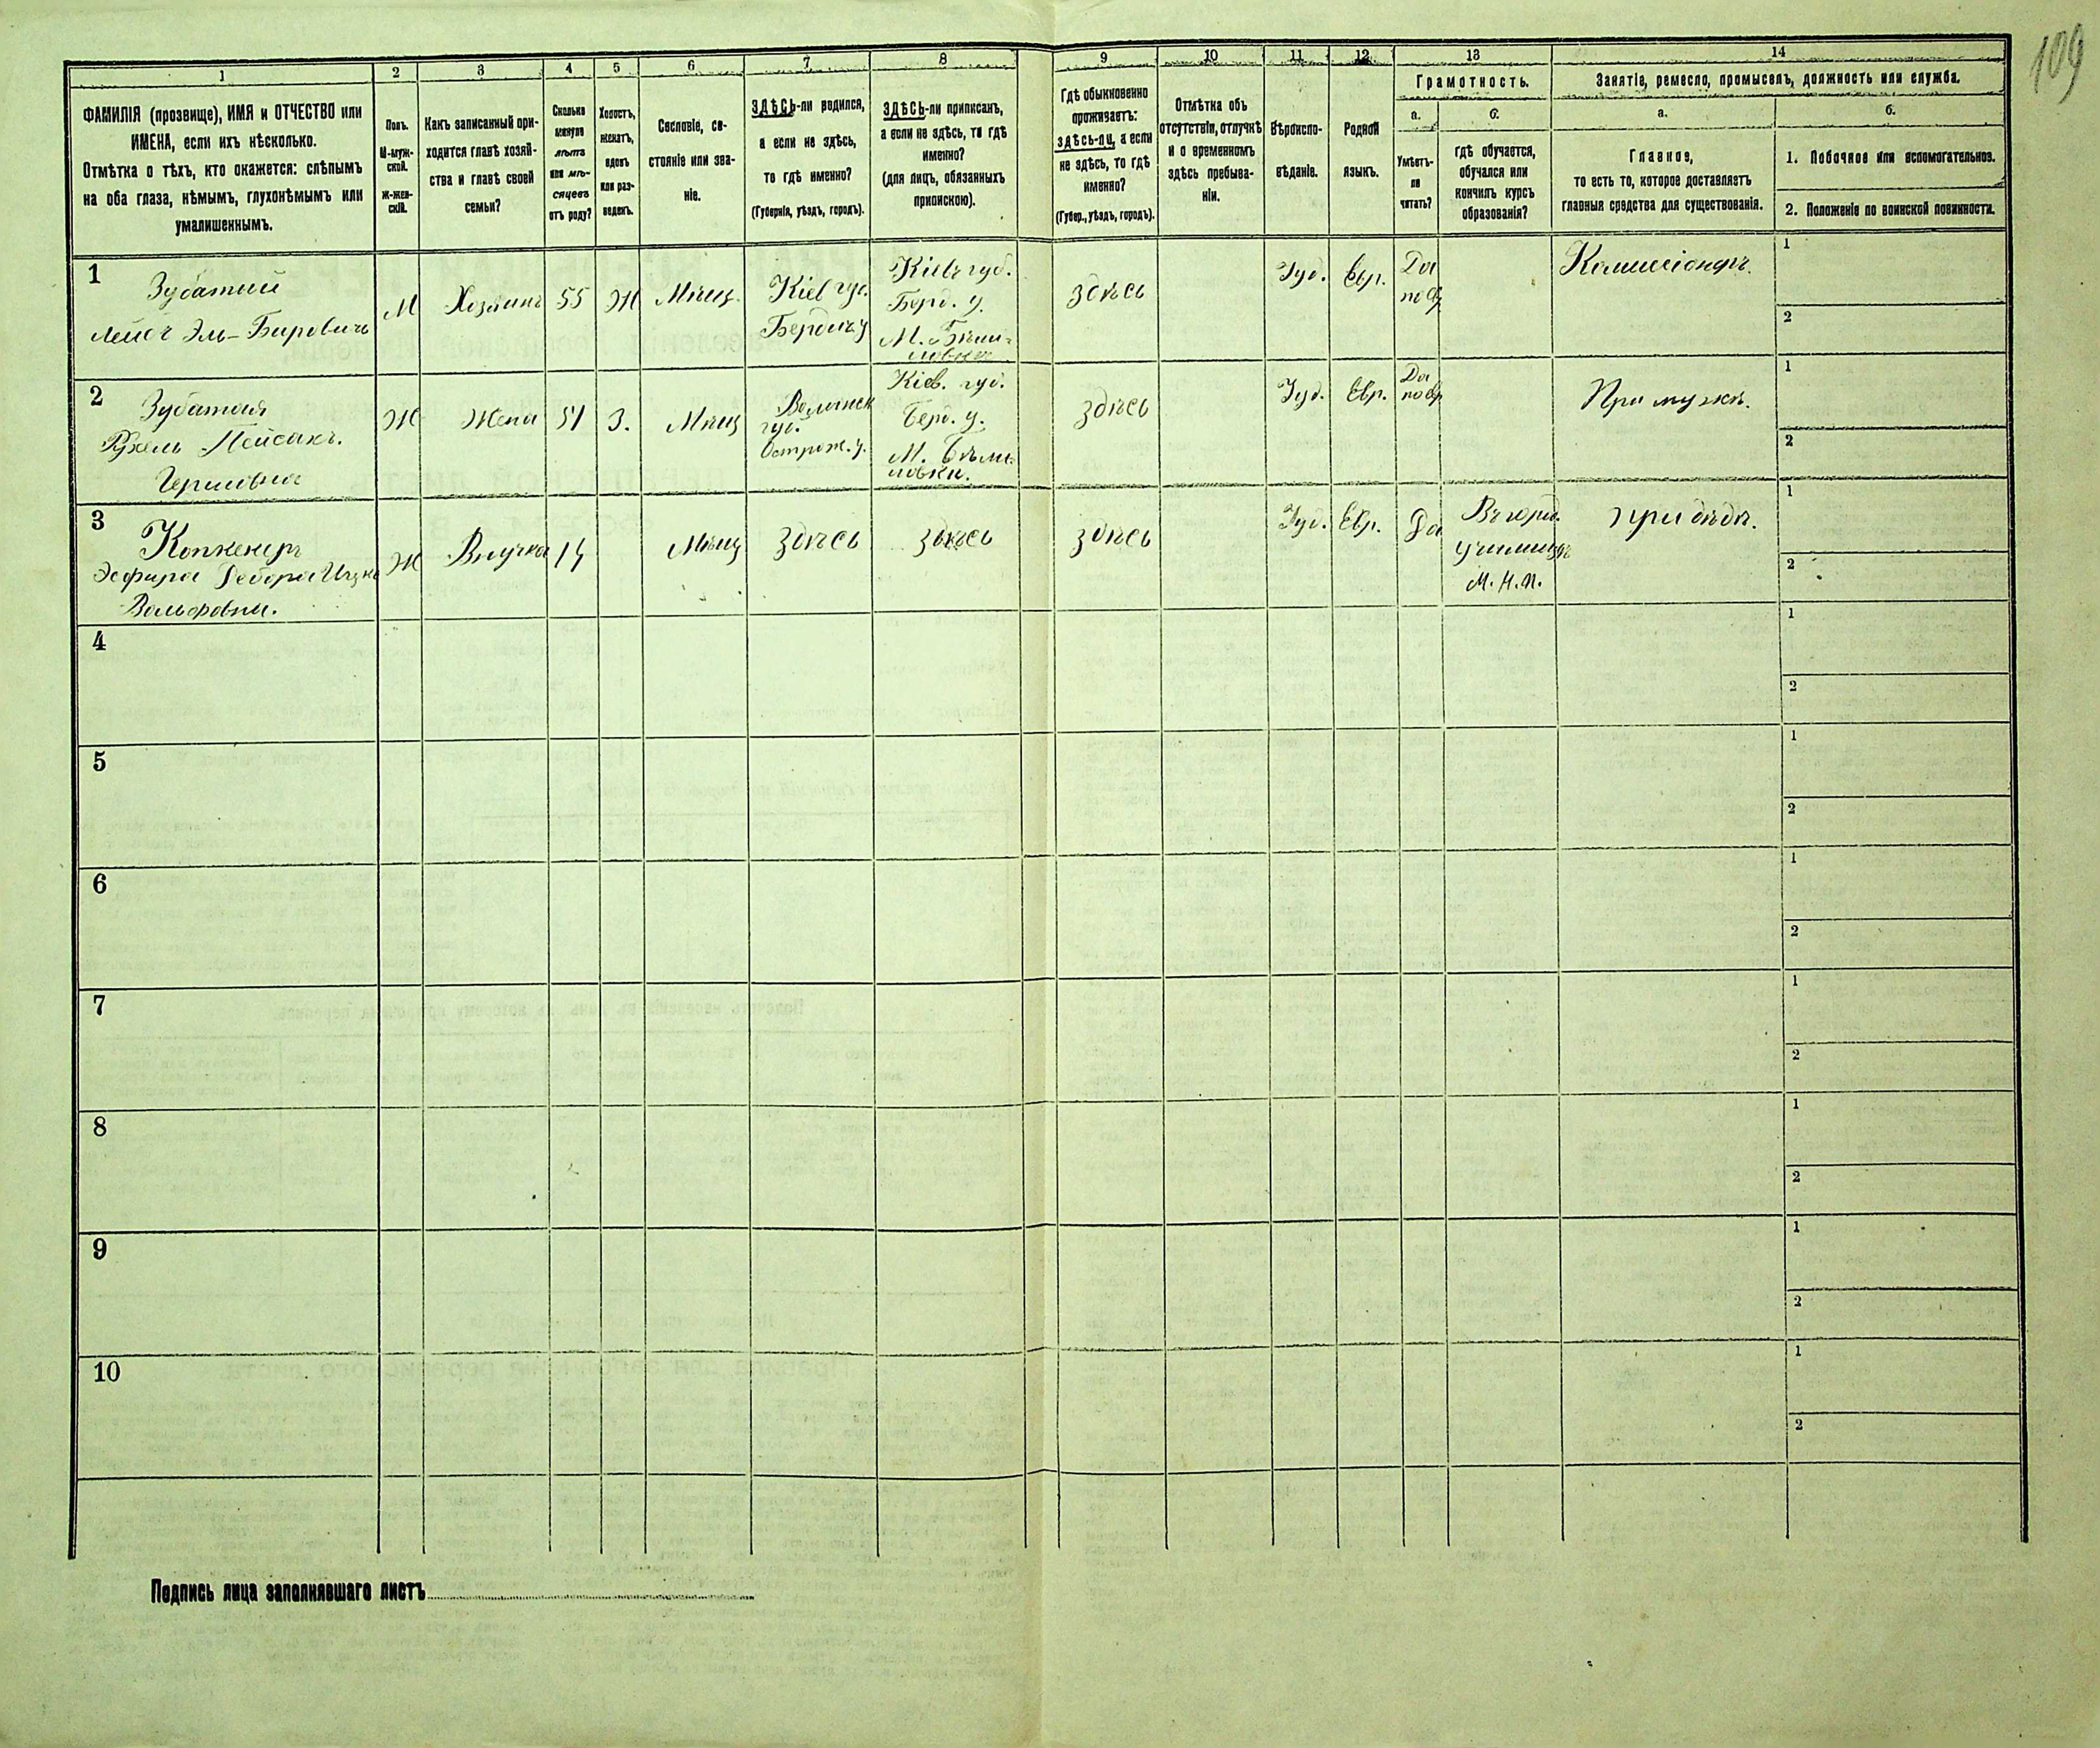 109
1 2 3 4 5 6 7 8 9 10 11 12 13 14
ФАМИЛІЯ (прозвище), ИМЯ и ОТЧЕСТВО или
ИМЕНА, если ихъ нѣсколько.
Отмѣтка о тѣхъ, кто окажется: слѣпымъ
на оба глаза, нѣмымъ, глухонѣмымъ или
умалишеннымъ.
Полъ.
М-муж-
ской.
Ж-жен-
скій.
Какъ записанный при-
ходится главѣ хозяй-
ства и главѣ своей
семьи?
Сколько
минуло
лѣтъ
или мѣ-
сяцевъ
отъ роду?
Холостъ,
женатъ,
вдовъ
или раз-
веденъ.
Сословіе, со-
стояніе или зва-
ніе.
ЗДѢСЬ-ли родился,
а если не здѣсь,
то гдѣ именно?
(Губернія, уѣздъ, городъ).
ЗДѢСЬ-ли приписанъ,
а если не здѣсь, то гдѣ
именно?
(для лицъ, обязанныхъ
припискою).
Гдѣ обыкновенно
проживаетъ:
здѣсь-ли, а если
не здѣсь, то гдѣ
именно?
(Губер., уѣздъ, городъ).
Отмѣтка объ
отсутствіи, отлучкѣ
и о временномъ
здѣсь пребыва-
ніи.
Вѣроиспо-
вѣданіе.
Родной
языкъ.
Грамотность.
а.
Умѣетъ-
ли
читать?
б.
гдѣ обучается,
обучался или
кончилъ курсъ
образованія?
Занятіе, ремесло, промыселъ, должность или служба.
а.
Главное,
то есть то, которое доставляетъ
главныя средства для существованія.
б.
1. Побочное или вспомогательное.
2. Положеніе по воинской повинности.
1
Зубатый
Лейбъ Эль-Беровичъ
М
Хозяинъ
55
Ж
Мѣщ.
Кіев губ.
Бердич у
Кіевъ губ.
Берд. у.
М. Бѣли-
ловки
Здѣсь
Іуд.
Евр.
Да
по евр
Комиссіонеръ.
1
2
2
Зубатая
Рухель Пейсакъ.
Гершовна
Ж
Жена
51
З.
Мѣщ
Волынск
губ.
Острож. у.
Кіев. губ.
Берд. у.
М. Бѣли-
ловки.
Здѣсь
Іуд.
Евр.
Да
по евр
При мужѣ.
1
2
3
Эсфира Дебора Ицко
Вольфовна.
Ж
Внучка
14
Мѣщ
Здѣсь
Здѣсь
Здѣсь
Іуд.
Евр.
Да
училищѣ
М. Н. П.
При дѣдѣ.
1
2
4
1
2
5
1
2
6
1
2
7
1
2
8
1
2
9
1
2
10
1
2
Подпись лица заполнявшаго листъ